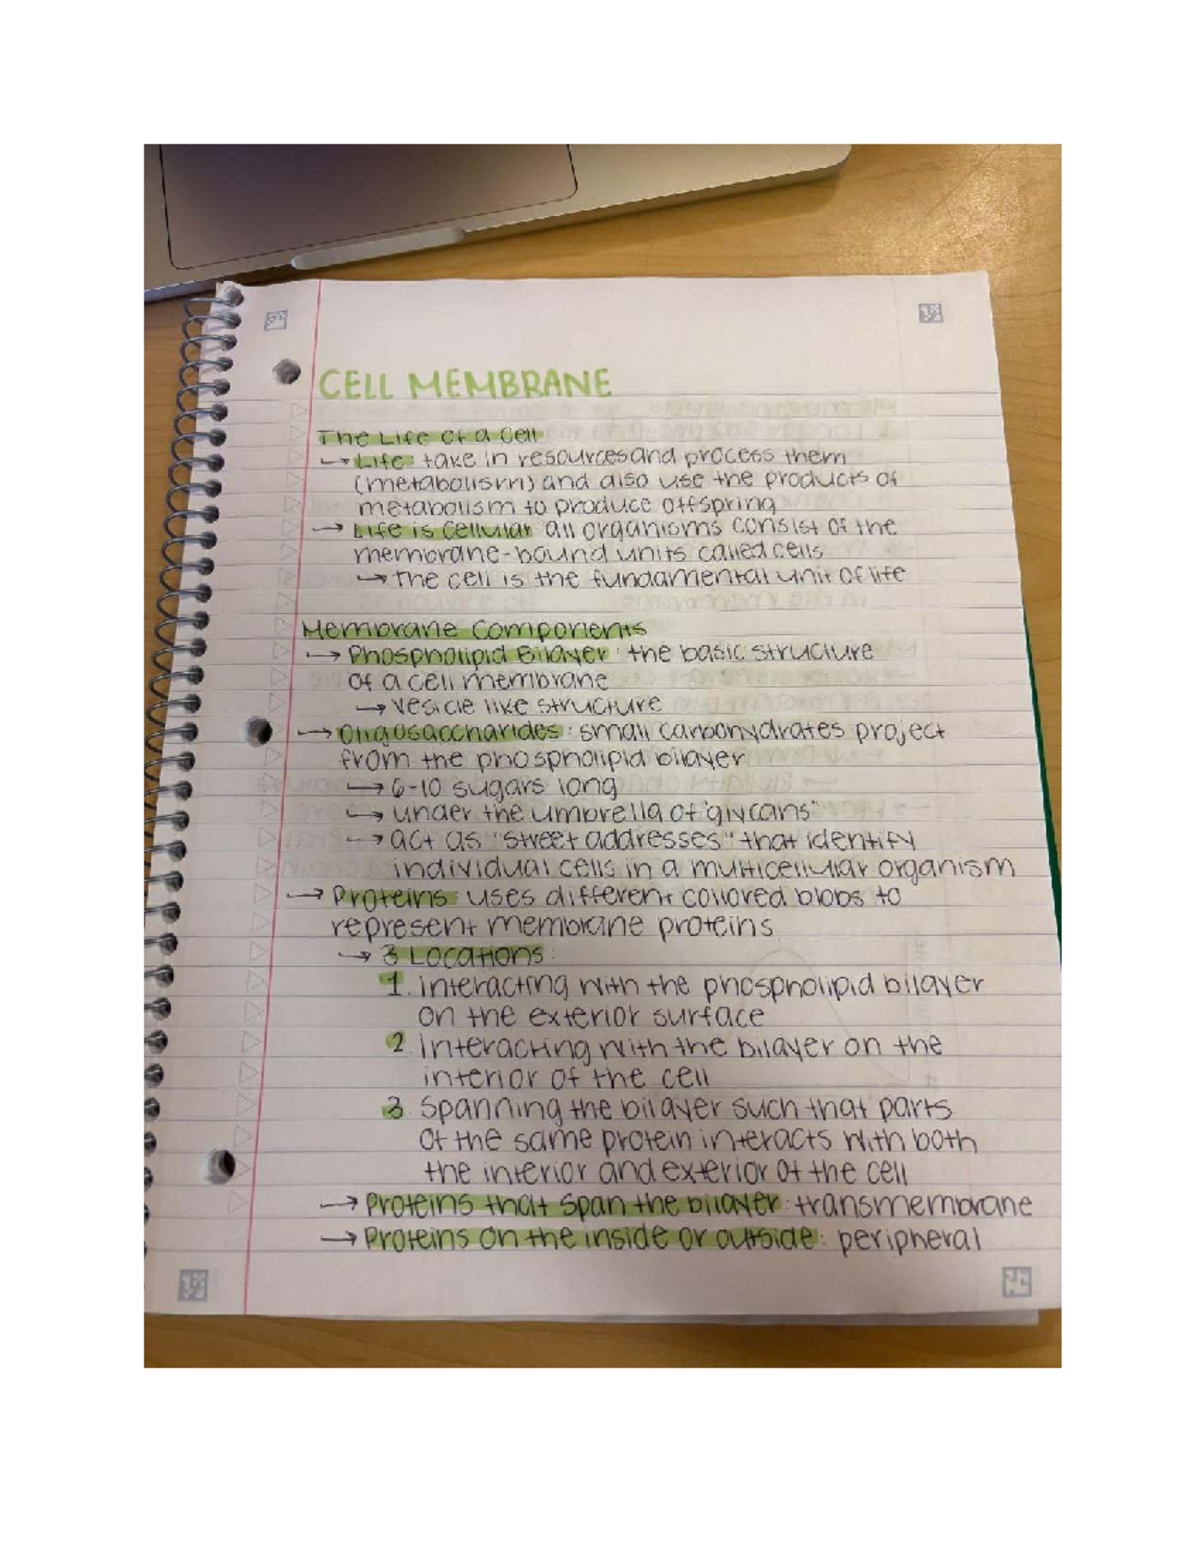 CELL MEMBRANE
The Life of a Cell
→ Life: take in resources and process them
(metabolism) and also use the products of
metabolism to produce offspring
→ Life is cellular all organisms consist of the
membrane-bound units called cells
→ The cell is the fundamental unit of life
Membrane Components
→ Phospholipid Bilayer: the basic structure
of a cell membrane
→ vesicle like structure
→ Oligosaccharides: small carbohydrates project
from the phospholipid bilayer
→ 6-10 sugars long
→ under the umbrella of "glycans"
→ act as "street addresses" that identify
individual cells in a multicellular organism
→ Proteins: uses different collored blobs to
represent membrane proteins
→ 3 Locations:
1. Interacting with the phospholipid bilayer
on the exterior surface
2. Interacting with the bilayer on the
interior of the cell
3. Spanning the bilayer such that parts
of the same protein interacts with both
the interior and exterior of the cell
→ Proteins that span the bilayer: transmembrane
→ Proteins on the inside or outside: peripheral